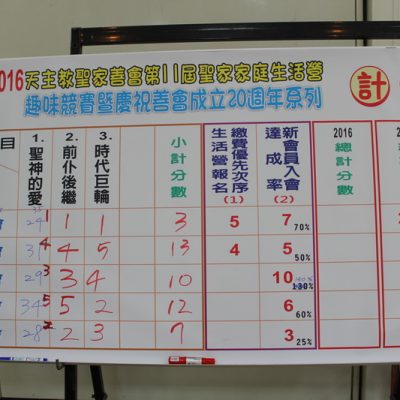 2016天主教聖家善會第11屆聖家家庭生活營
趣味競賽暨慶祝善會成立20週年系列
計
目 1.聖神的愛 2.前仆後繼 3.時代巨輪 小計分數 生活營報名繳費優先次序(1) 新會員入會達成率(2) 2016總計分數 2
會 24 1 1 1 3 5 7 70%
會 31 4 4 5 13 4 5 50%
會 29 3 3 4 10 10 130%
會 34 5 5 2 12 6 60%
會 28 2 2 3 7 3 25%